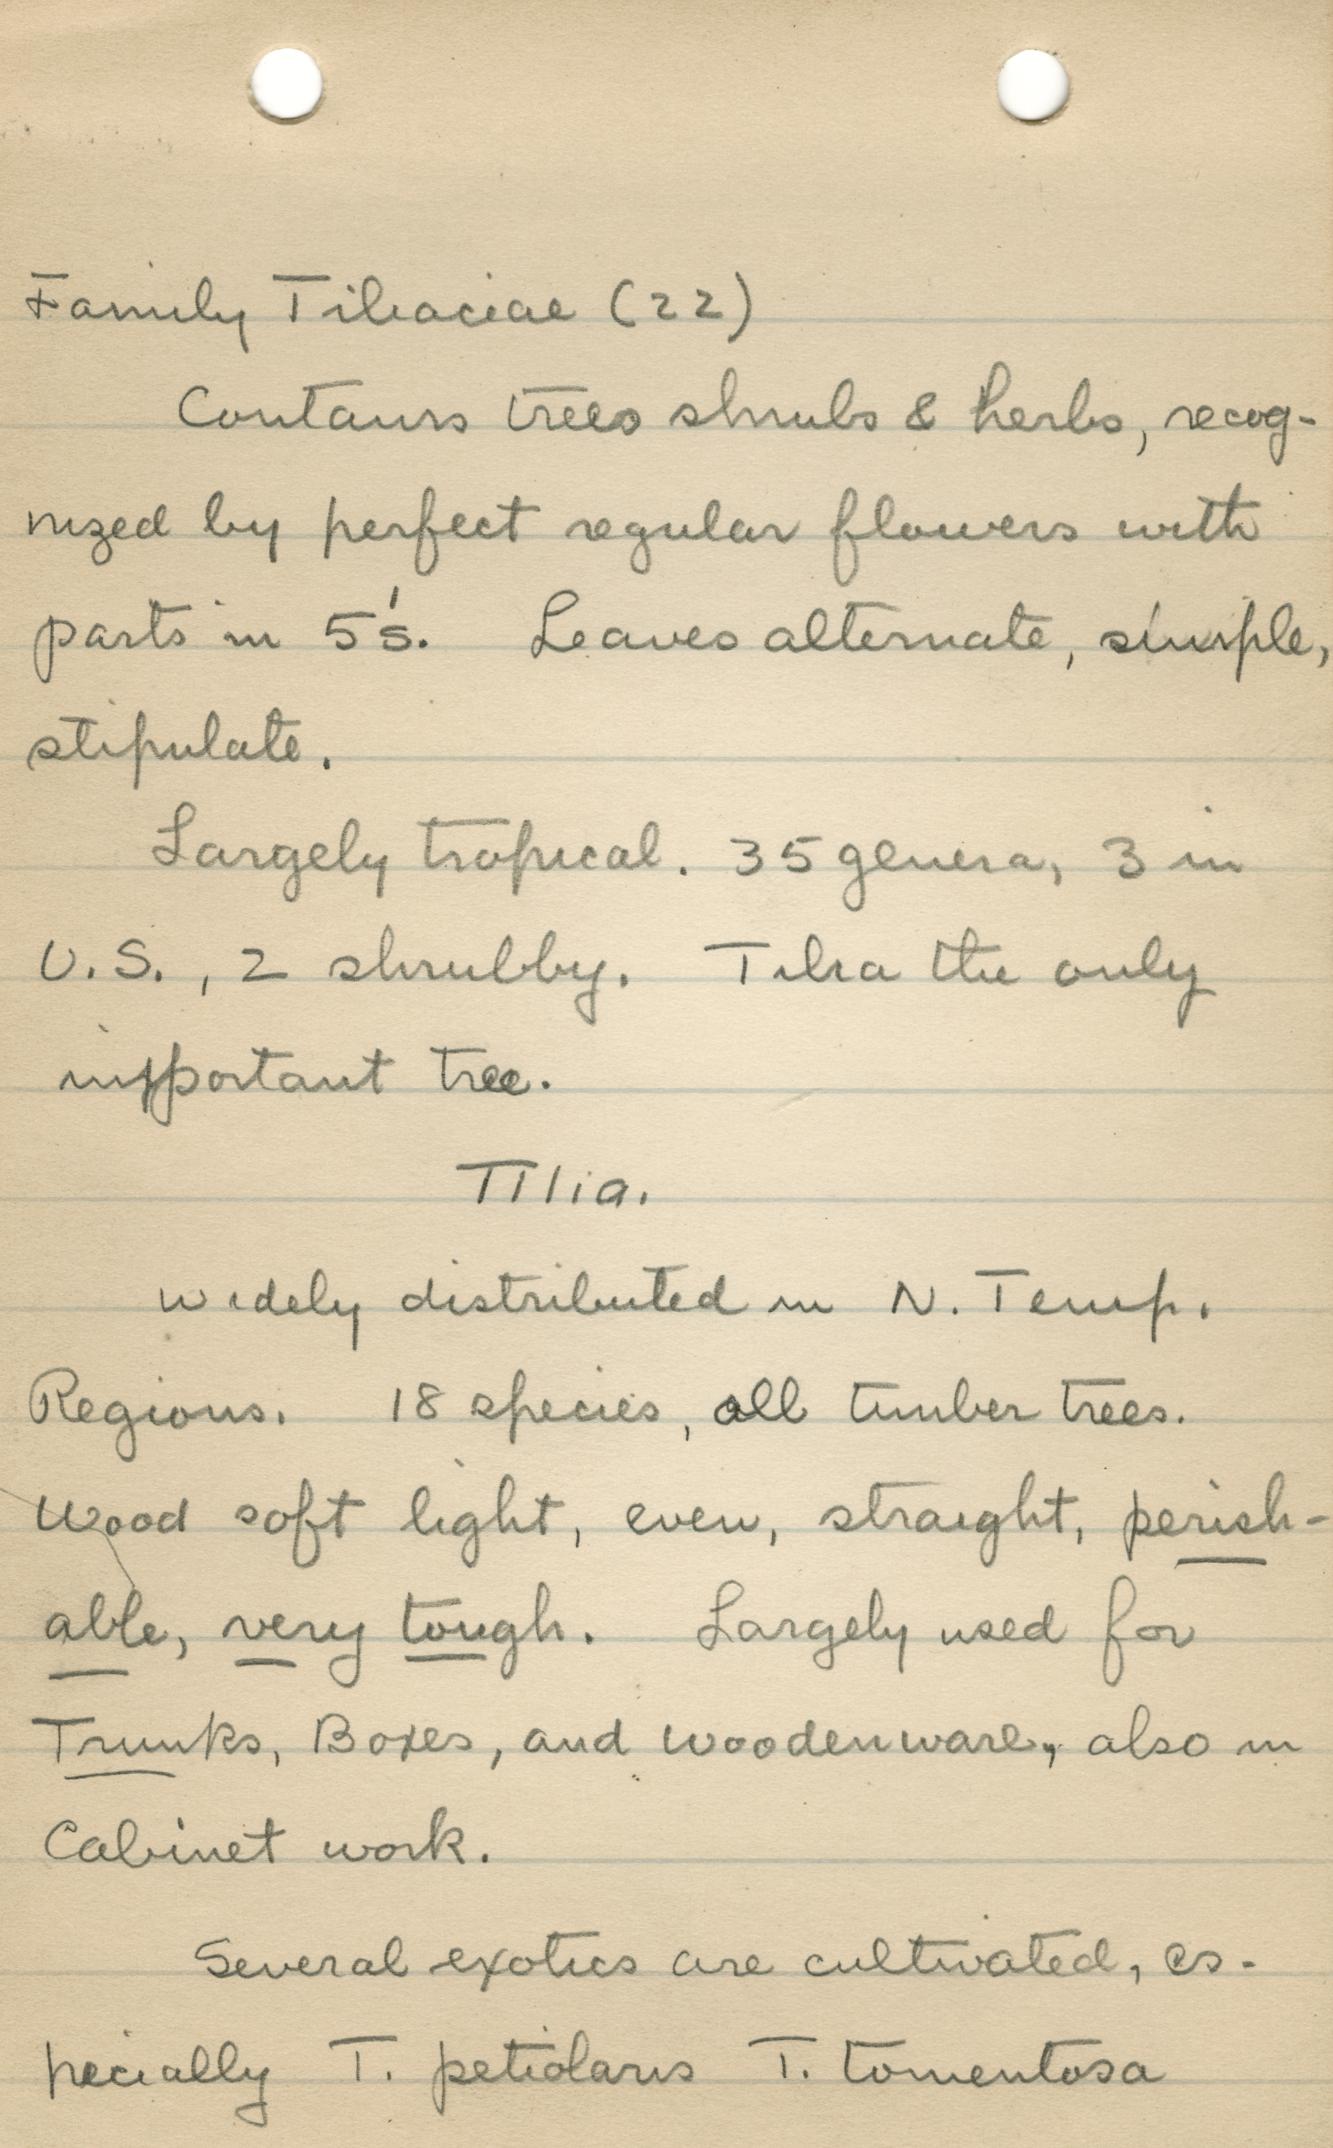 Family Tiliaceae (22)
Contains trees shrubs & herbs, recog-
nized by perfect regular flowers with
parts in 5's. Leaves alternate, simple,
stipulate.
Largely tropical. 35 genera, 3 in
U.S., 2 shrubby. Tilia the only
important tree.
Tilia.
widely distributed in N. Temp.
Regions. 18 species, all timber trees.
Wood soft light, even, straight, perish-
able, very tough. Largely used for
Trunks, Boxes, and woodenware, also in
Cabinet work.
Several exotics are cultivated, es-
pecially T. petiolaris T. tomentosa